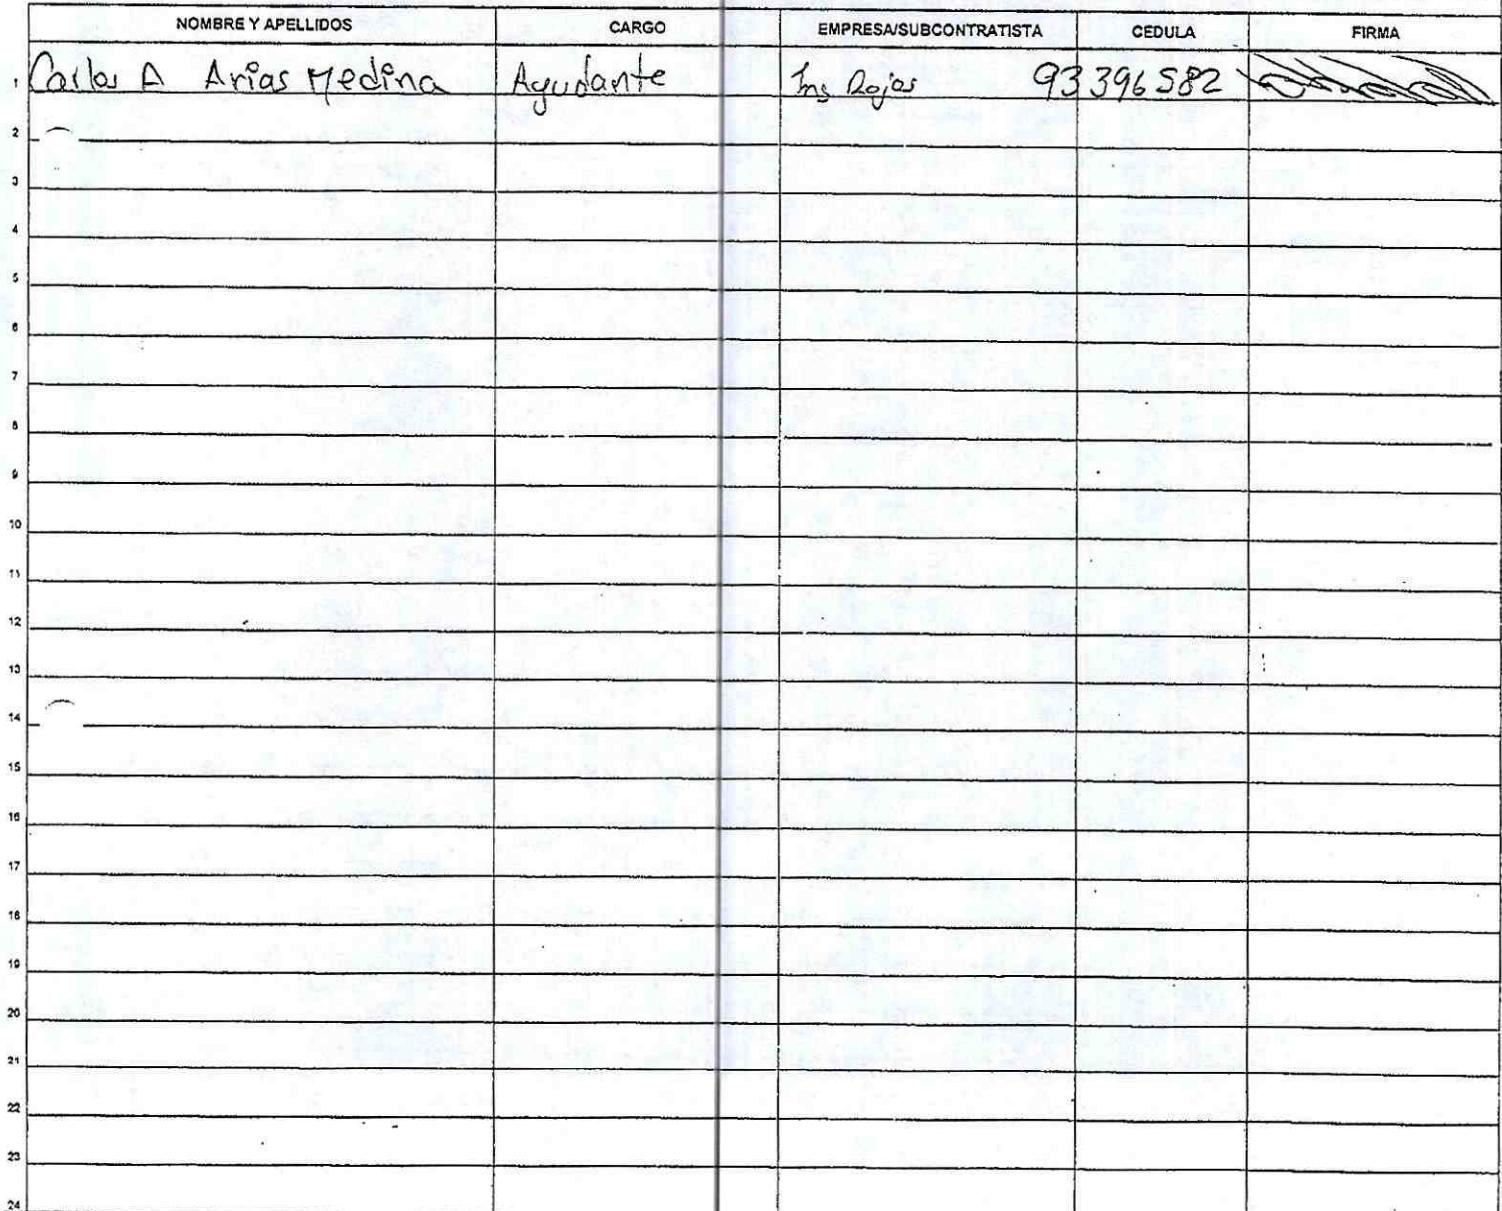 NOMBRE Y APELLIDOS CARGO EMPRESA/SUBCONTRATISTA CEDULA FIRMA
1 Carlos A Arias Medina Ayudante Ing Rojas 93396582
2
3
4
5
6
7
8
9
10
11
12
13
14
15
16
17
18
19
20
21
22
23
24